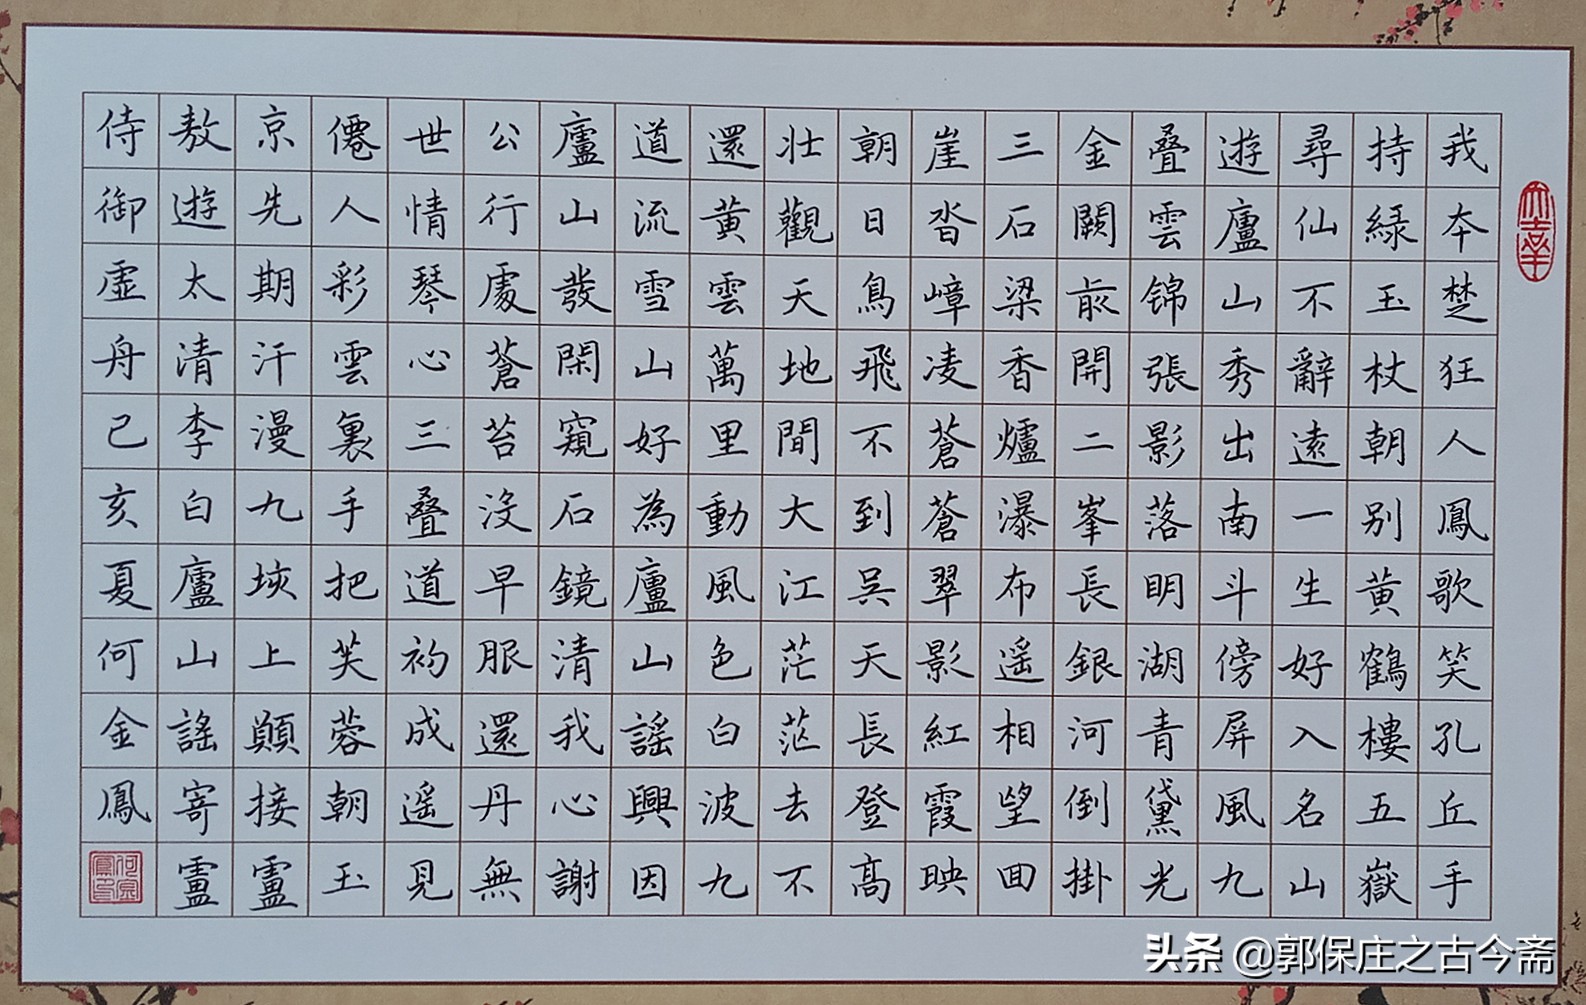 我本楚狂人鳳歌笑孔丘手
持緑玉杖朝别黄鶴樓五嶽
尋仙不辭遠一生好入名山
遊廬山秀出南斗傍屏風九
叠雲锦張影落明湖青黛光
金闕前開二峯長銀河倒掛
三石梁香爐瀑布遥相望回
崖沓嶂凌蒼蒼翠影紅霞映
朝日鳥飛不到吳天長登高
壯觀天地間大江茫茫去不
還黄雲萬里動風色白波九
道流雪山好為廬山謠興因
廬山發閑窺石鏡清我心謝
公行處蒼苔沒早服還丹無
世情琴心三叠道初成遥見
僊人彩雲裏手把芙蓉朝玉
京先期汗漫九垓上顛接盧
敖遊太清李白廬山謠寄盧
侍御虚舟己亥夏何金鳳
头条 @郭保庄之古今斋